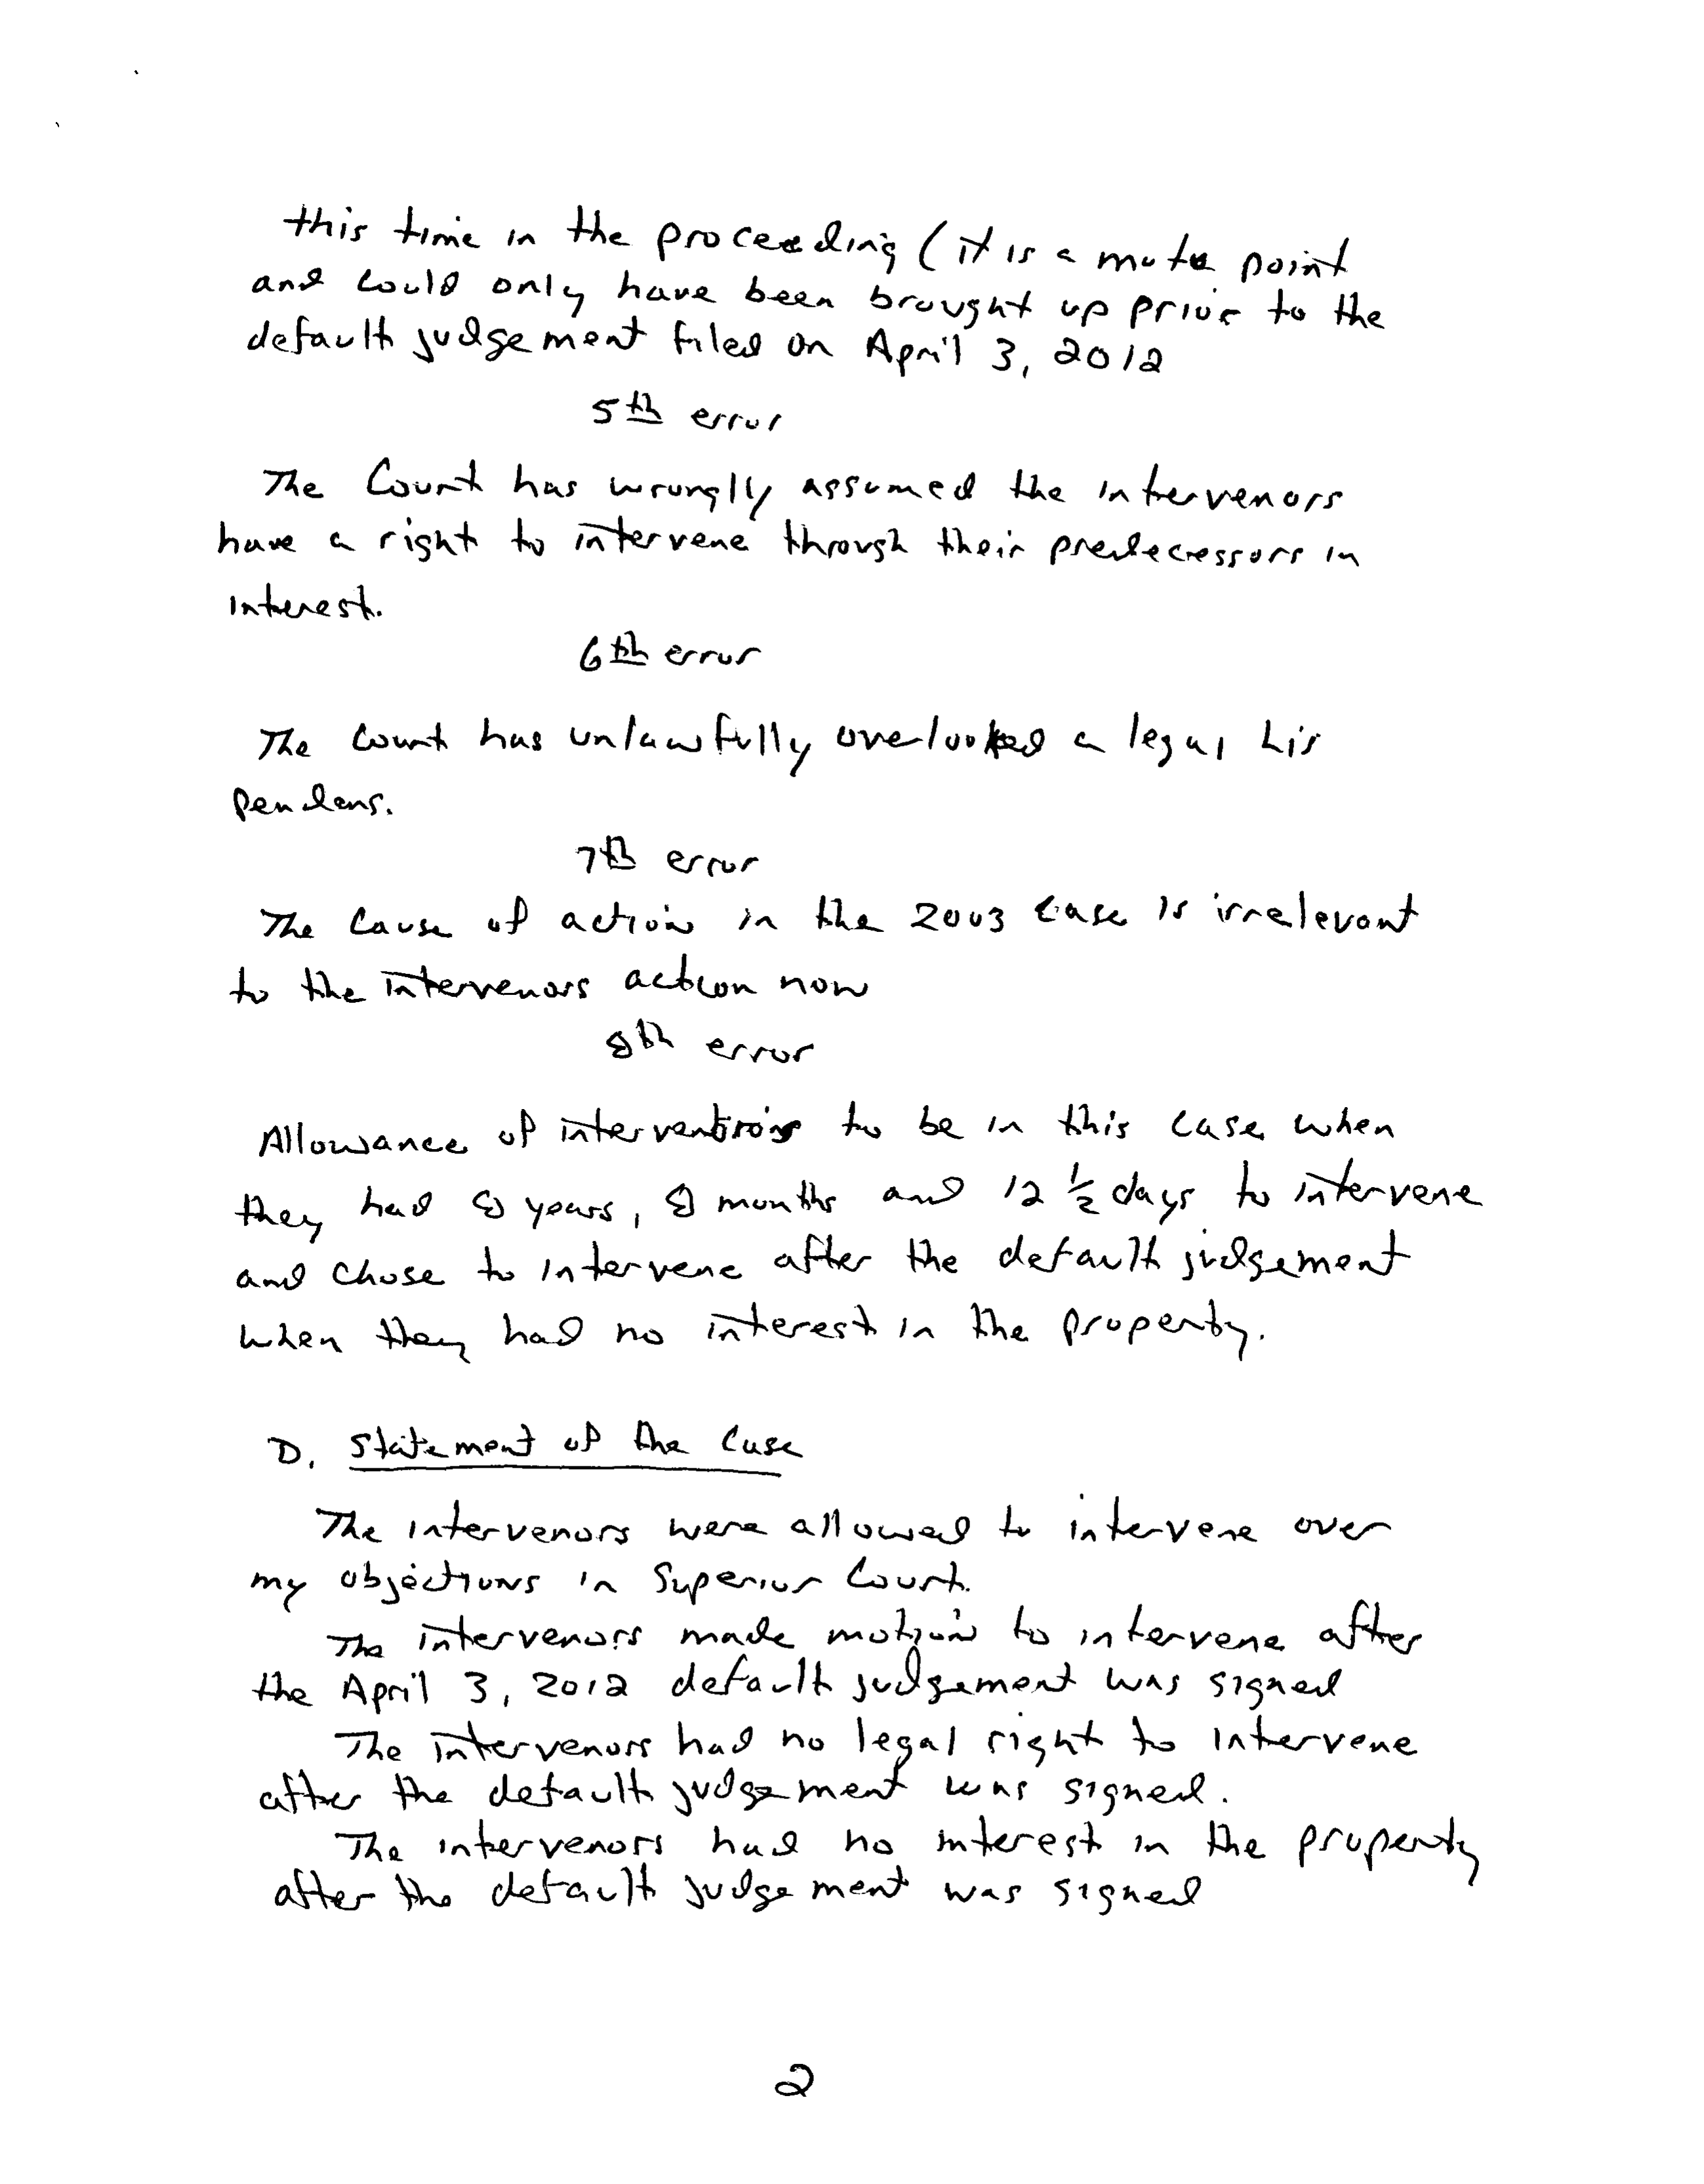 this time in the proceeding (it is a mute point
and could only have been brought up prior to the
default judgement filed on April 3, 2012
5th error
The Court has wrongly assumed the intervenors
have a right to intervene through their predecessors in
interest.
6th error
The Court has unlawfully overlooked a legal Lis
pendens.
7th error
The cause of action in the 2003 case is irrelevant
to the intervenors action now
8th error
Allowance of interventions to be in this case when
they had 8 years, 8 months and 12 ½ days to intervene
and chose to intervene after the default judgement
when they had no interest in the property.
D. Statement of the Case
The intervenors were allowed to intervene over
my objections in Superior Court.
The intervenors made motion to intervene after
the April 3, 2012 default judgement was signed
The intervenors had no legal right to intervene
after the default judgement was signed.
The intervenors had no interest in the property
after the default judgement was signed
2